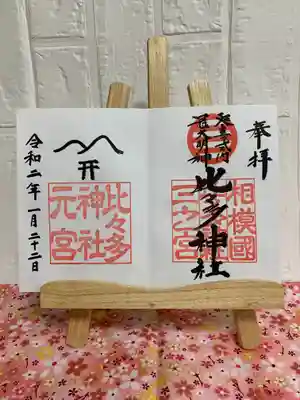 奉拝
相模國
延喜式内
冠大明神
比多神社
三之宮
比々多
神社
元宮
令和二年一月二十二日